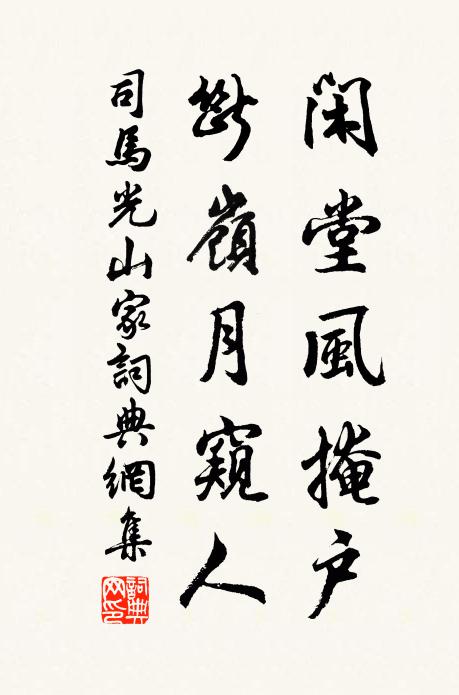 閑堂風掩户
斷嶺月窺人
司馬光山家詞典網集
詞典網印